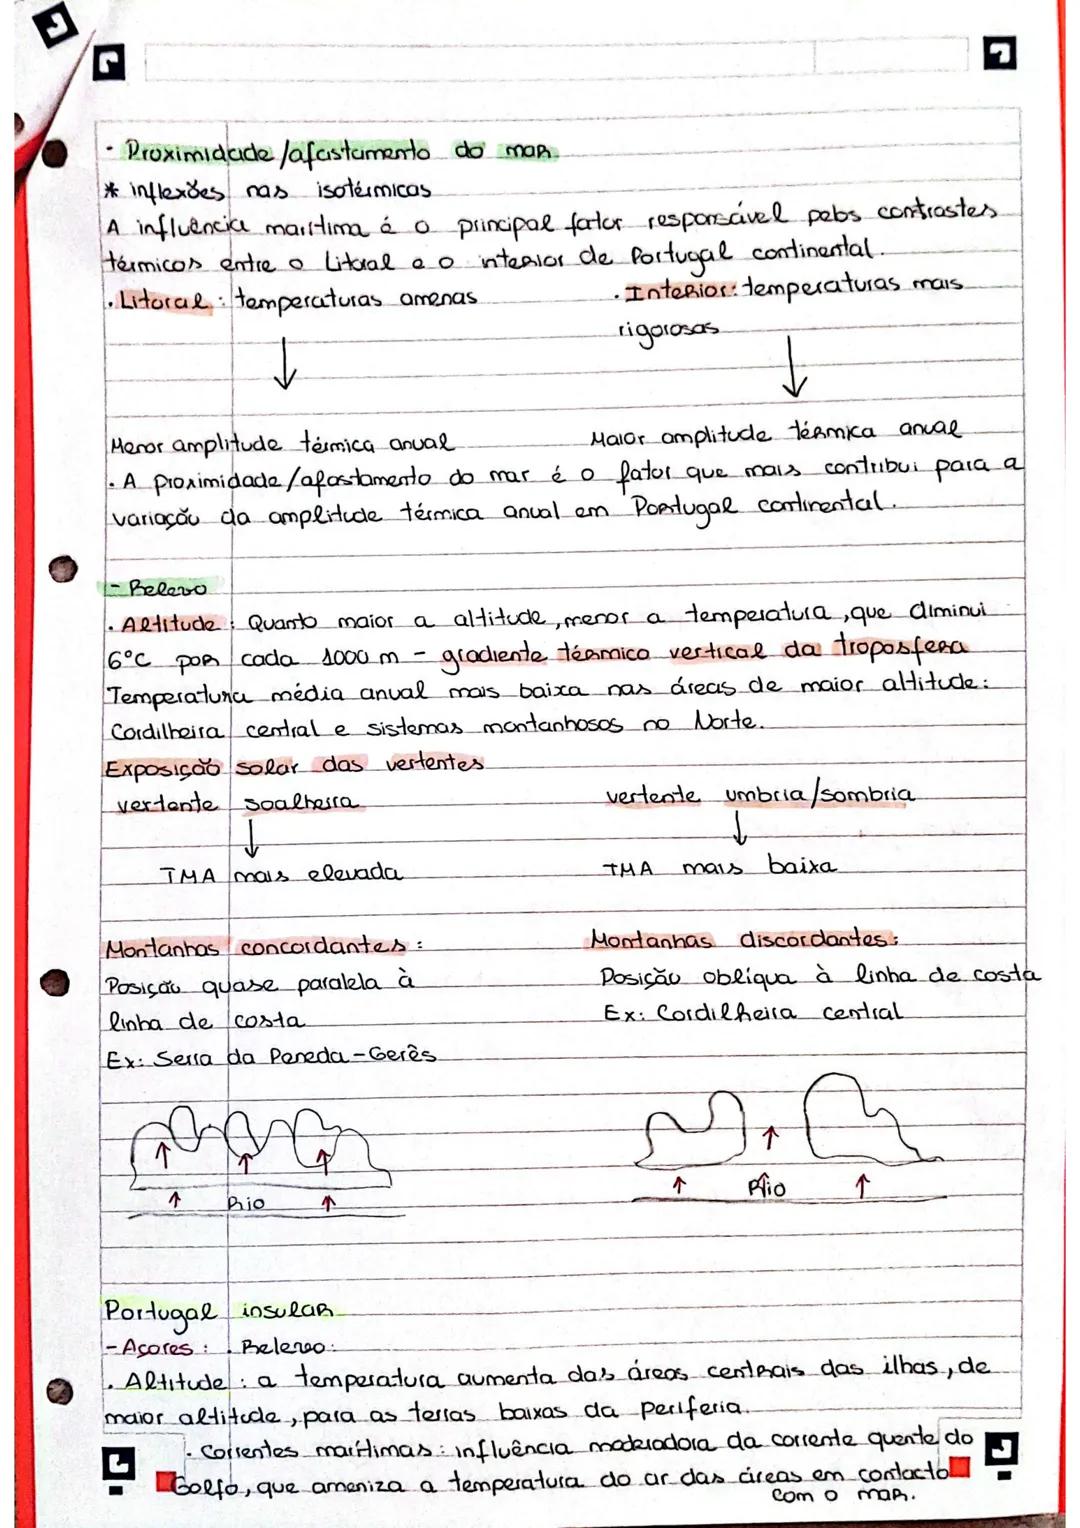 · Proximidade/afastamento do mar.
* inflexões nas isotérmicas
A influência marítima é o principal fator responsável pelos contrastes
térmicos entre o Litoral e o interior de Portugal continental.
· Litoral: temperaturas amenas
· Interior: temperaturas mais
rigorosas
↓ ↓
Menor amplitude térmica anual
Maior amplitude térmica anual
· A proximidade/afastamento do mar é o fator que mais contribui para a
variação da amplitude térmica anual em Portugal continental.
- Relevo
· Altitude: Quanto maior a altitude, menor a temperatura, que diminui
6°C por cada 1000 m - gradiente térmico vertical da troposfera
Temperatura média anual mais baixa nas áreas de maior altitude:
Cordilheira central e sistemas montanhosos no Norte.
Exposição solar das vertentes
vertente soalheira
vertente umbria/sombria
↓ ↓
TMA mais elevada
TMA mais baixa
Montanhas concordantes:
Posição quase paralela à
linha de costa
Ex: Serra da Peneda-Gerês
Montanhas discordantes:
Posição oblíqua à linha de costa
Ex: Cordilheira central
Rio
Rio
Portugal insular
- Açores: · Relevo:
· Altitude: a temperatura aumenta das áreas centrais das ilhas, de
maior altitude, para as terras baixas da periferia.
· Correntes marítimas: influência moderadora da corrente quente do
Golfo, que ameniza a temperatura do ar das áreas em contacto
com o mar.